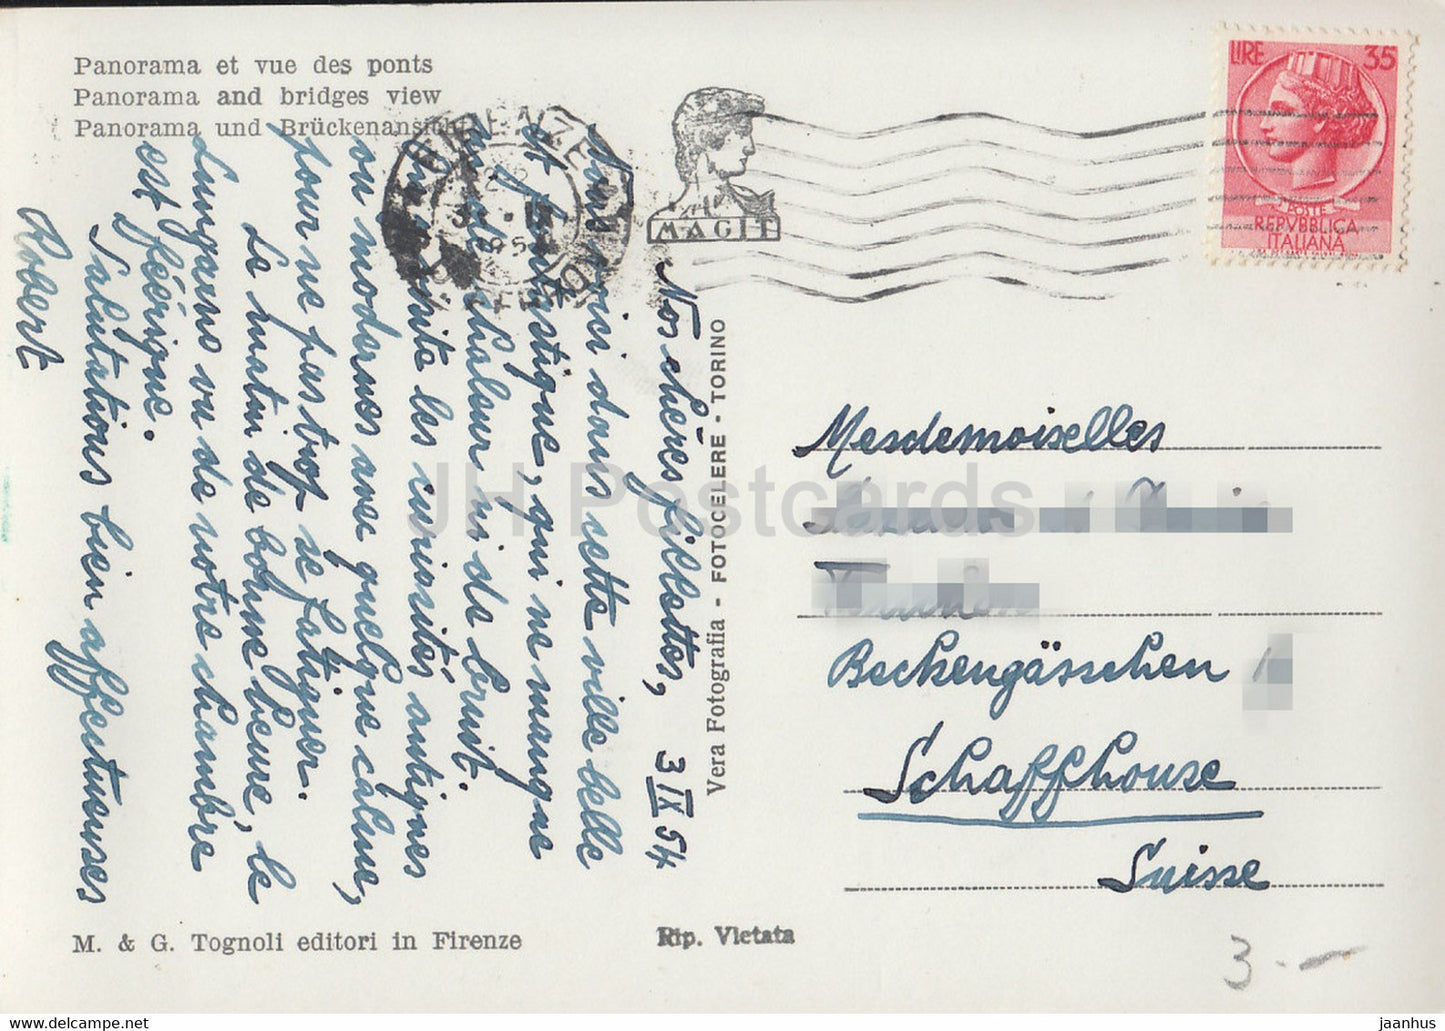 Panorama et vue des ponts
Panorama and bridges view
Panorama und Brückenansicht
Nos chères fillettes, 3 IX 54
ici dans cette ville belle
et fantastique, qui ne manque
ni de chaleur ni de bruit.
On visite les curiosités antiques
ou modernes avec quelque calme,
pour ne pas trop se fatiguer.
Le matin de bonne heure, le
Lungarno vu de notre chambre
est féerique.
Salutations bien affectueuses
Robert
M. & G. Tognoli editori in Firenze
Rip. Vietata
Vera Fotografia - FOTOCELERE - TORINO
FIRENZE
MAGIT
LIRE 35
POSTE
REPVBBLICA
ITALIANA
Mesdemoiselles
Beckengässchen
Schaffhouse
Suisse
3.-
JH Postcards
www.jaanhus.com